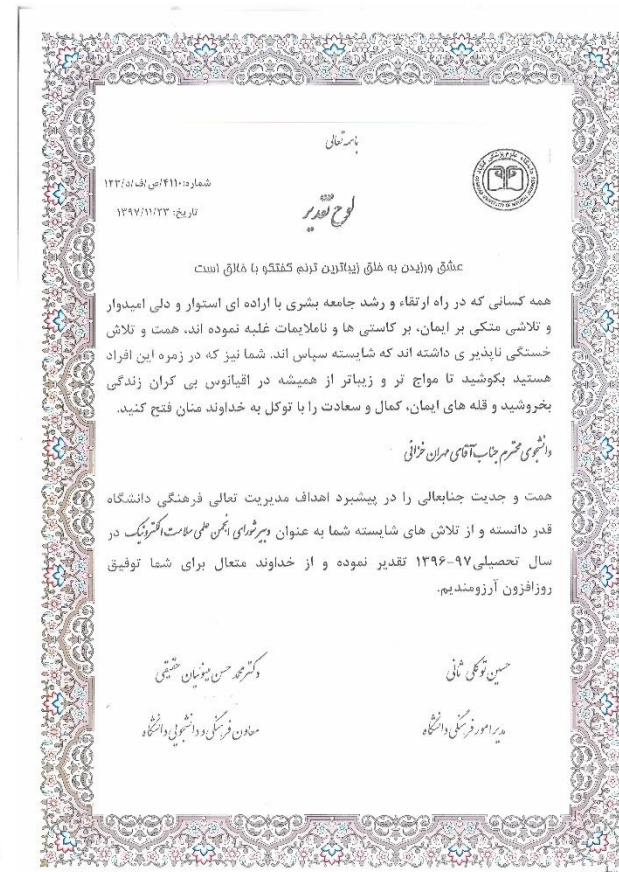 باسمه تعالی
شماره: ۴۱۱۰/ص/ف/د/۱۲۳
تاریخ: ۱۳۹۷/۱۱/۲۳
لوح تقدیر
عشق ورزیدن به خلق زیباترین ترنم گفتگو با خالق است
همه کسانی که در راه ارتقاء و رشد جامعه بشری با اراده ای استوار و دلی امیدوار
و تلاشی متکی بر ایمان، بر کاستی ها و ناملایمات غلبه نموده اند، همت و تلاش
خستگی ناپذیر ی داشته اند که شایسته سپاس اند. شما نیز که در زمره این افراد
هستید بکوشید تا مواج تر و زیباتر از همیشه در اقیانوس بی کران زندگی
بخروشید و قله های ایمان، کمال و سعادت را با توکل به خداوند منان فتح کنید.
دانشجوی محترم جناب آقای مهران خزانی
همت و جدیت جنابعالی را در پیشبرد اهداف مدیریت تعالی فرهنگی دانشگاه
قدر دانسته و از تلاش های شایسته شما به عنوان دبیر شورای انجمن علمی سلامت الکترونیک در
سال تحصیلی ۹۷-۱۳۹۶ تقدیر نموده و از خداوند متعال برای شما توفیق
روزافزون آرزومندیم.
حسین توکلی ثانی
مدیر امور فرهنگی دانشگاه
دکتر محمد حسن میئونیان حقیقی
معاون فرهنگی و دانشجویی دانشگاه